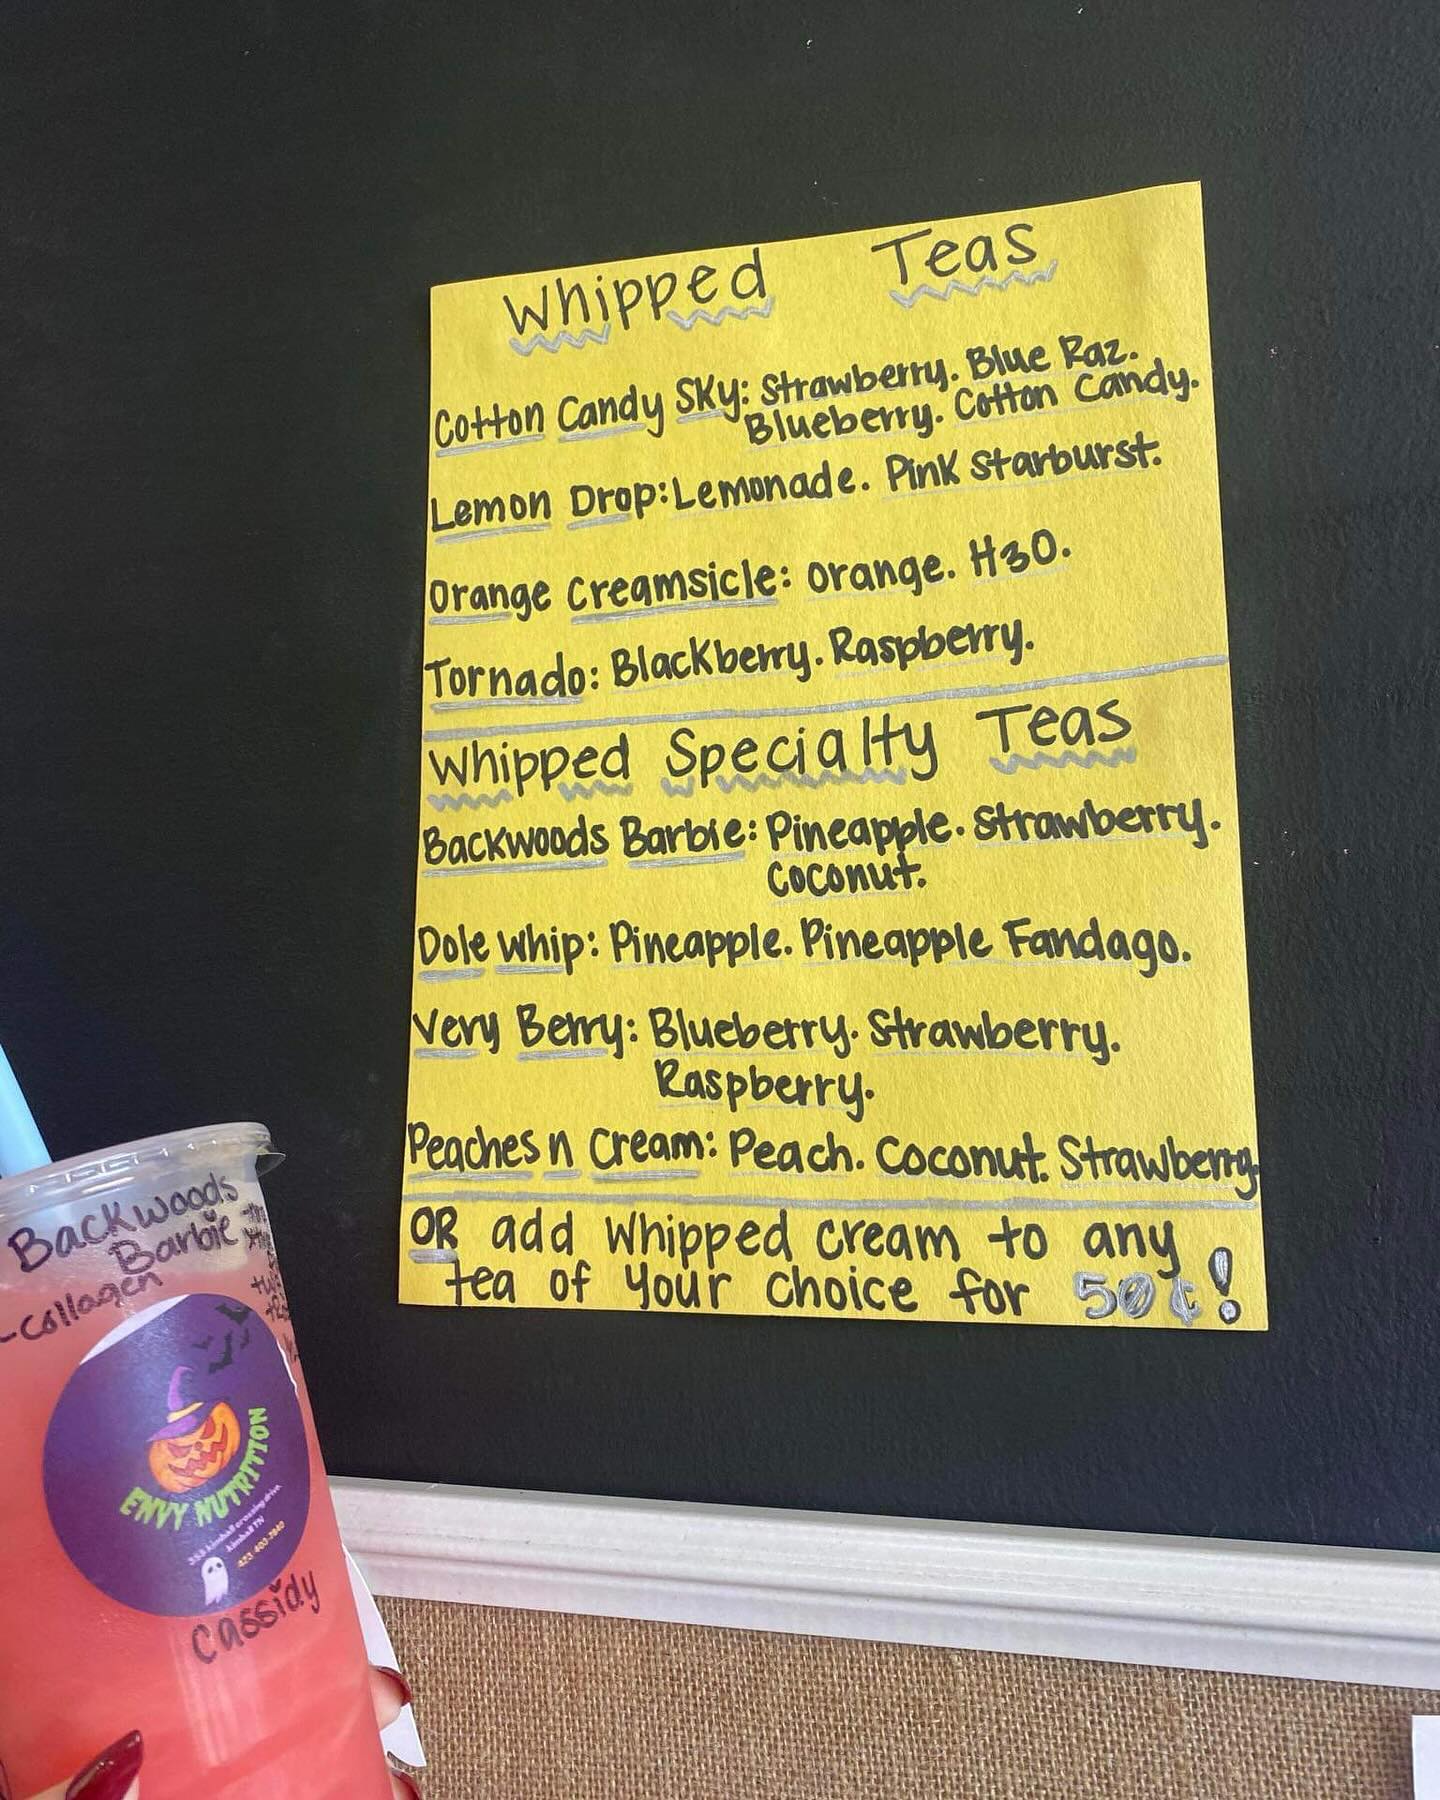 Whipped Teas
Cotton Candy Sky: Strawberry. Blue Raz.
Blueberry. Cotton Candy.
Lemon Drop: Lemonade. Pink Starburst.
Orange Creamsicle: Orange. H3O.
Tornado: Blackberry. Raspberry.
Whipped Specialty Teas
Backwoods Barbie: Pineapple. Strawberry.
Coconut.
Dole Whip: Pineapple. Pineapple Fandago.
Very Berry: Blueberry. Strawberry.
Raspberry.
Peaches n Cream: Peach. Coconut. Strawberry.
OR add Whipped cream to any
tea of your choice for 50¢!
Backwoods
Barbie
-collagen
ENVY NUTRITION
kimball crossing drive
kimball TN
Cassidy